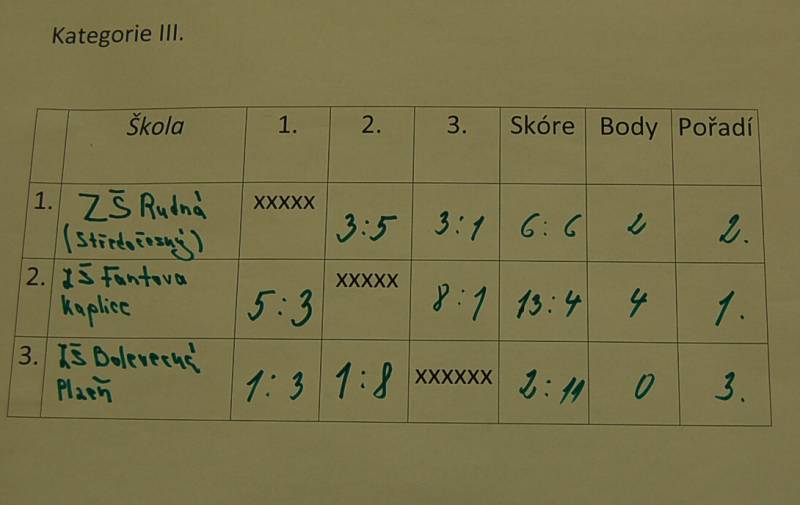 Kategorie III.
Škola 1. 2. 3. Skóre Body Pořadí
1. ZŠ Rudná xxxxx 3:5 3:1 6:6 2 2.
(Středočeský)
2. ZŠ Fantova 5:3 xxxxx 8:1 13:4 4 1.
Kaplice
3. ZŠ Bolevecká 1:3 1:8 xxxxxx 2:11 0 3.
Plzeň